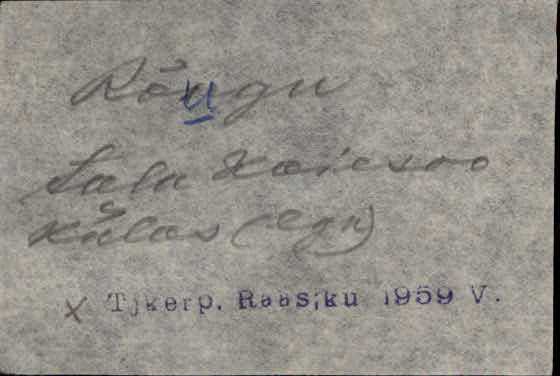 Rõugu
Salu Kõiesoo
külas
x Tjkerp. Raasiku 1959 V.